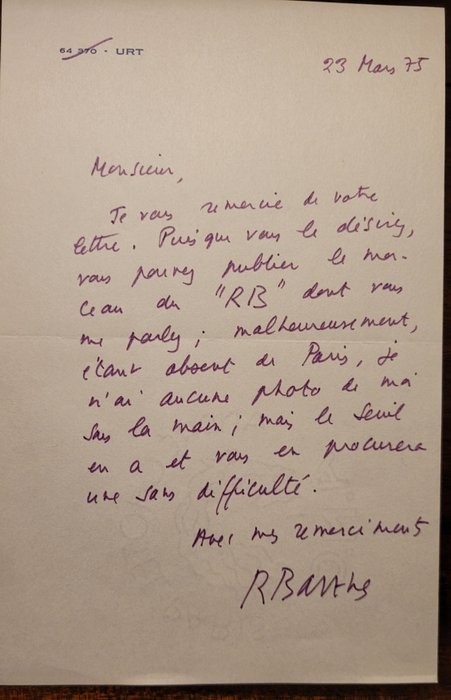 64 370 · URT
23 Mars 75
Monsieur,
Je vous remercie de votre
lettre. Puisque vous le désirez,
vous pouvez publier le mor-
ceau du "RB" dont vous
me parlez ; malheureusement,
étant absent de Paris, je
n'ai aucune photo de moi
sous la main ; mais le Seuil
en a et vous en procurera
une sans difficulté.
Avec mes remerciements
RBarthes